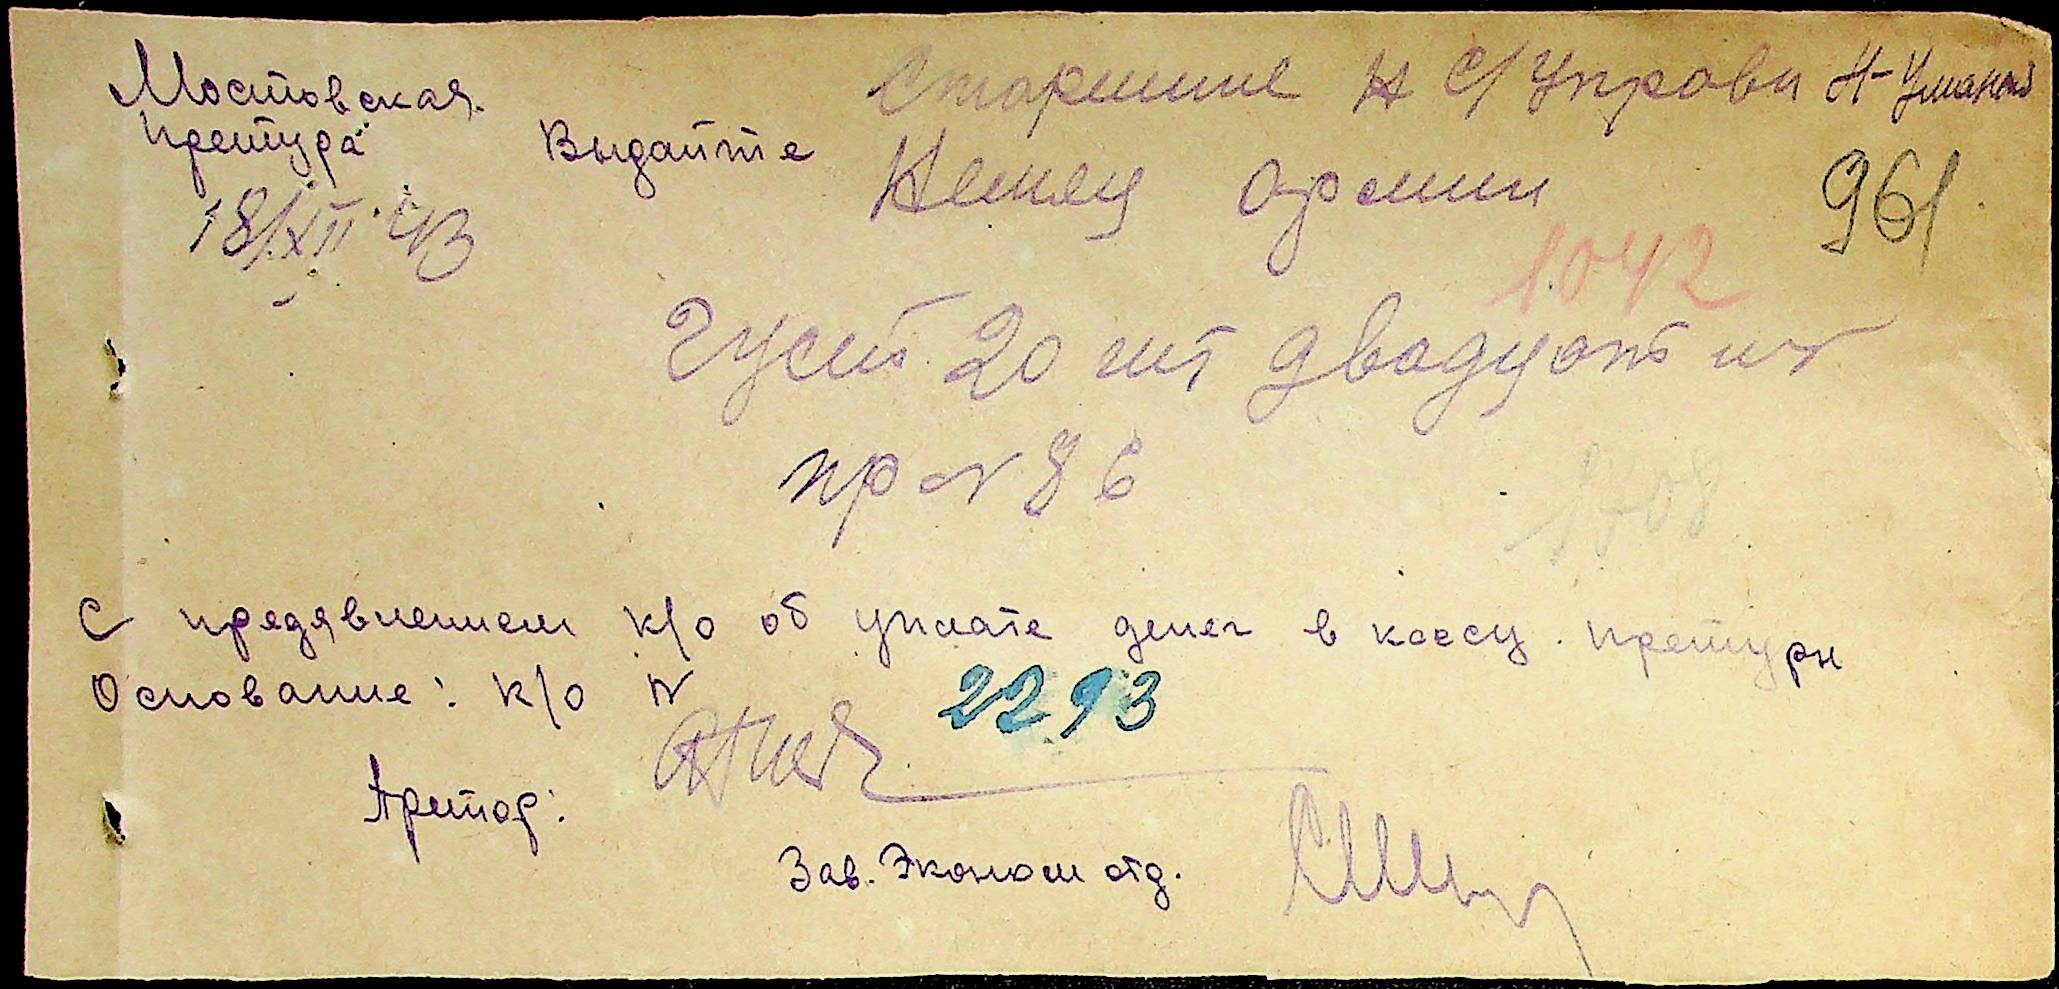 Мостовская.
Претура
18/XII 43
Старшине Н С/Управи Н-Умань
Выдайте Немец армии
961
1042
Гусей 20 шт двадцать шт
пр № 86
1708
С предявлением к/о об уплате денег в кассу претуры
Основание: к/о N 2293
Претор:
Зав. Эконом отд.